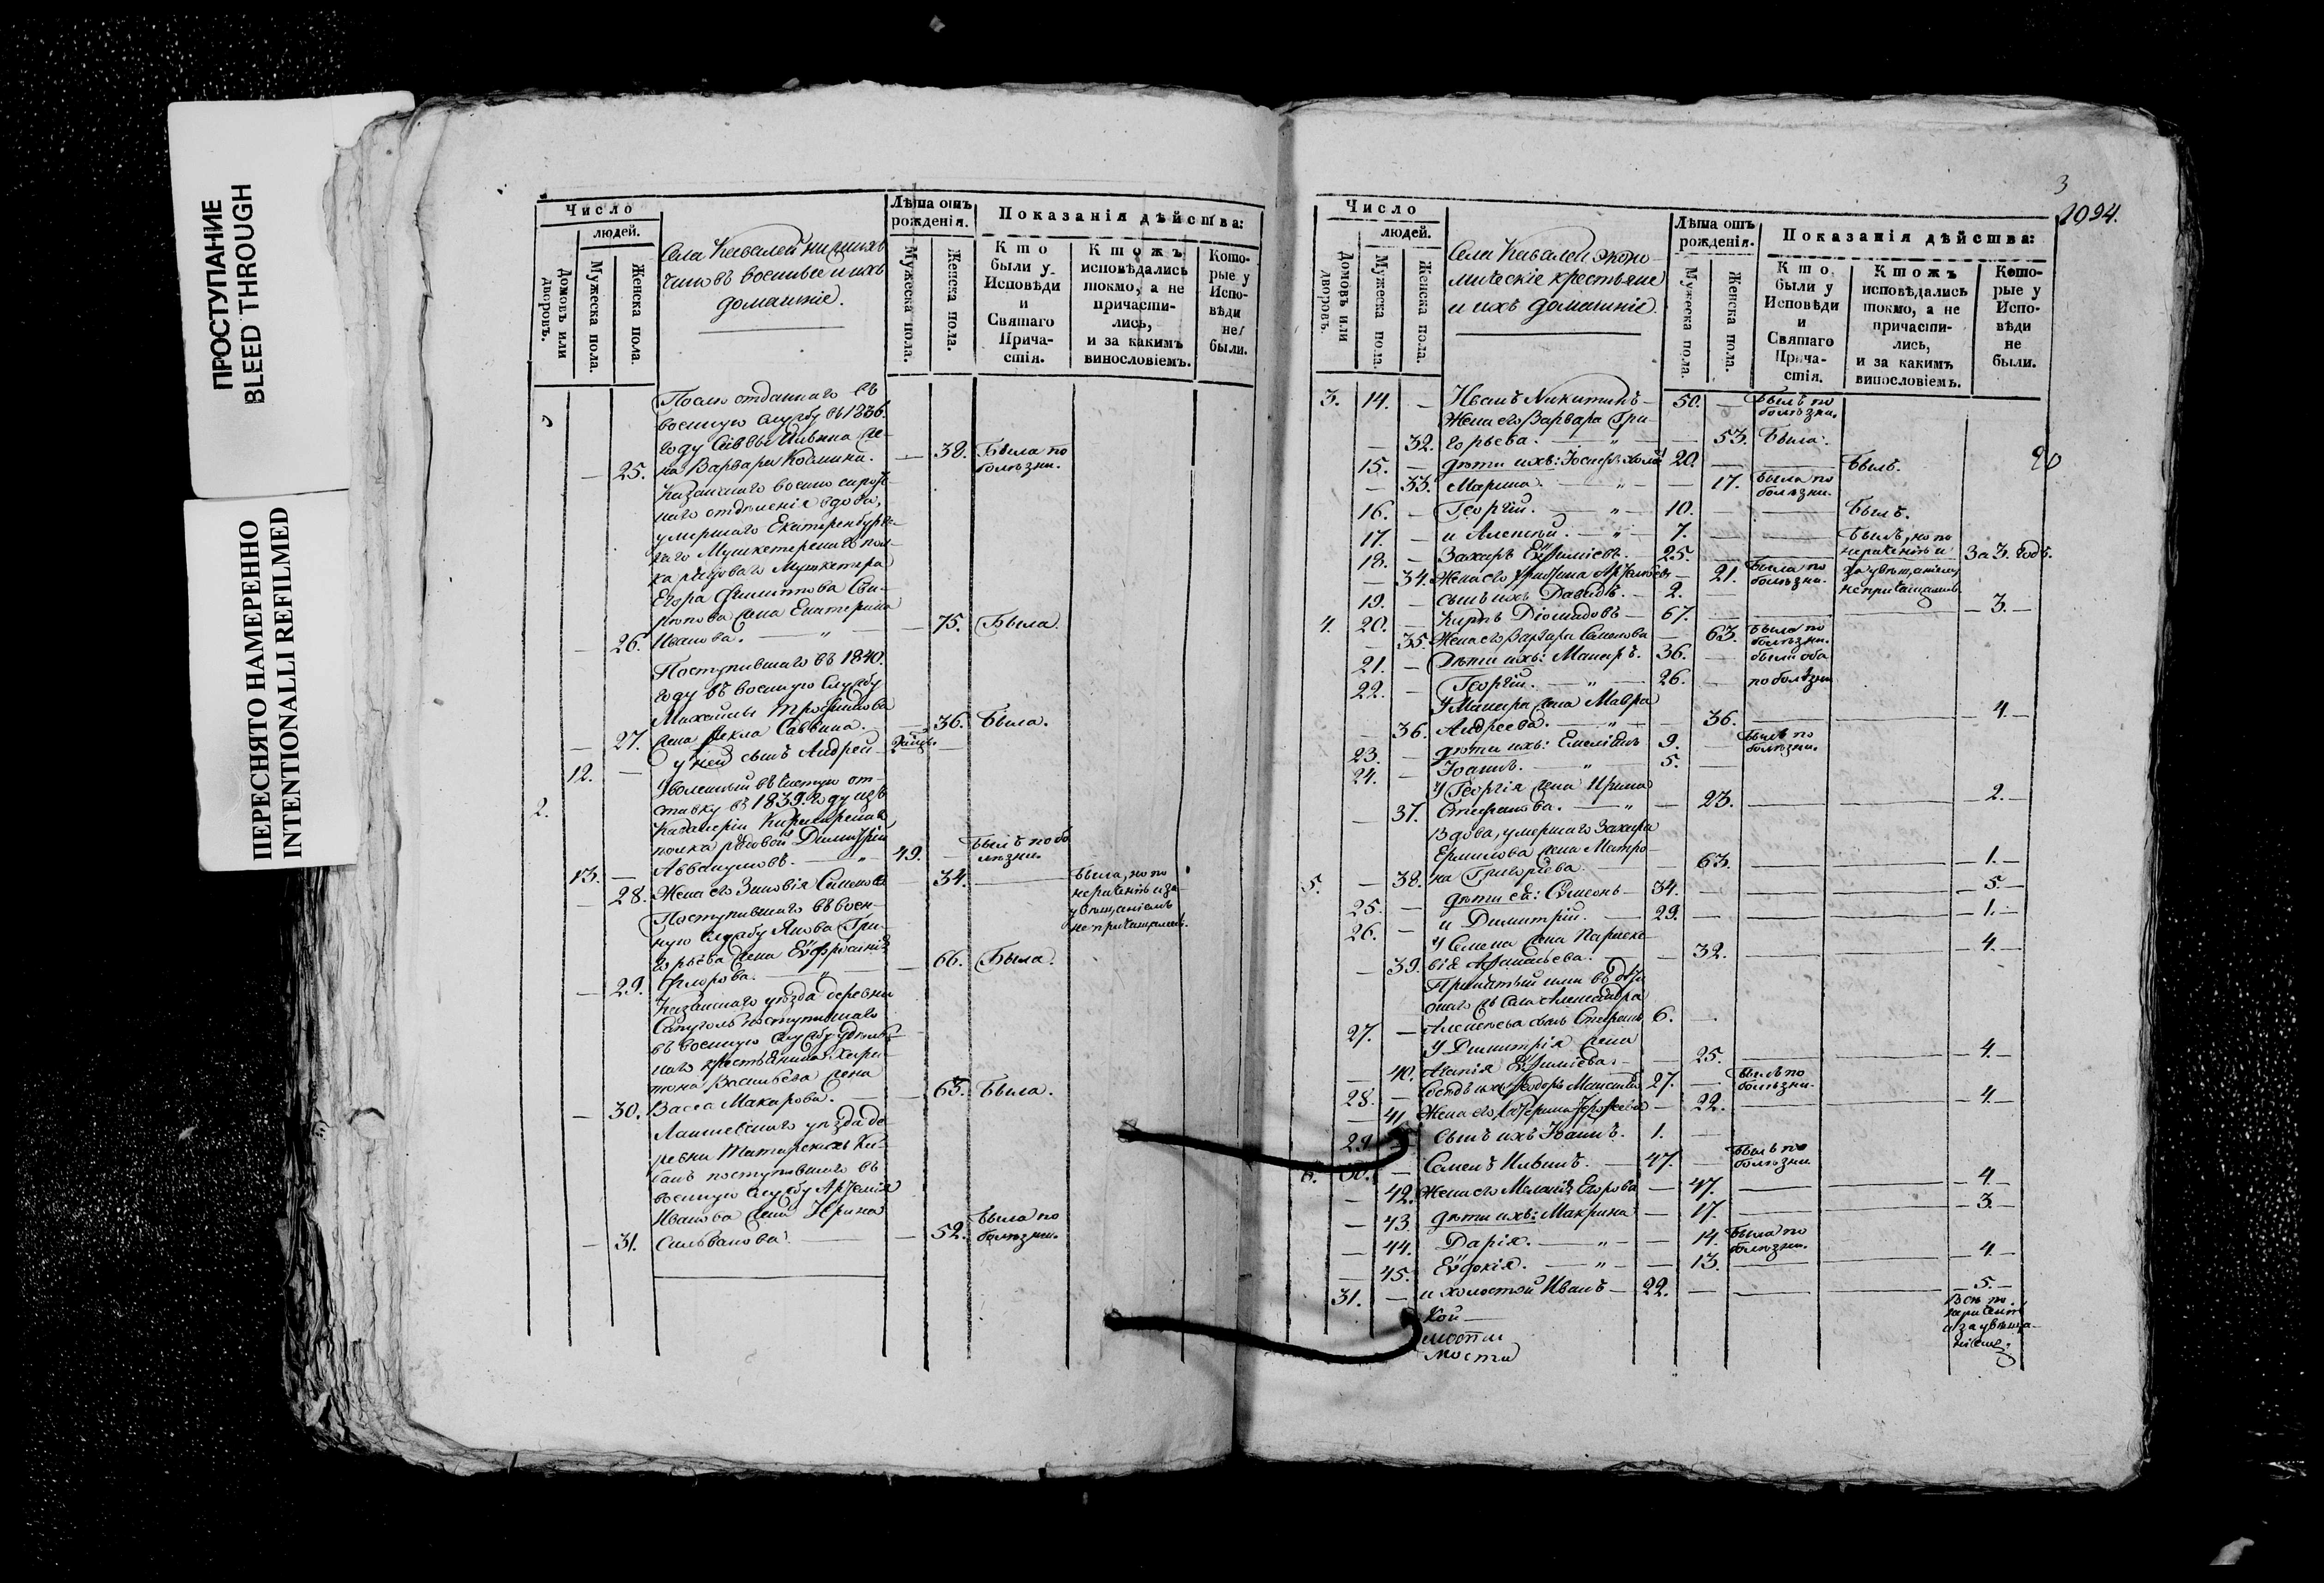 ПРОСТУПАНИЕ
BLEED THROUGH
ПЕРЕСНЯТО НАМЕРЕННО
INTENTIONALLI REFILMED
Число
людей.
Домовъ или дворовъ.
Мужеска пола.
Женска пола.
Села Кабалей нижнихъ
чиновъ военные и ихъ
домашніе.
Лѣта отъ
рожденія.
Мужеска пола.
Женска пола.
Показанія дѣйства:
Кто
были у
Исповѣди
и
Святаго
Прича-
стія.
Ктожъ
исповѣдались
токмо, а не
причасти-
лись,
и за какимъ
винословіемъ.
Кото-
рые у
Испо-
вѣди
не
были.
Послѣ отданнаго въ
военную службу въ 1836.
году Саввы Ильина же-
25. на Варвара Косьмина. — 38. Была по болѣзни.
Казанскаго военно сирот-
наго отдѣленія вдова,
умершаго Екатеринбург-
скаго Мушкетерскаго пол-
ка рядоваго Мушкетера
Егора Филиппова
жена Екатерина
26. Иванова. — 75. Была.
Поступившаго въ 1840.
году въ военную службу
Михайлы Трофимова
27. жена Ѳекла Саввина. — 36. Была.
12. — у ней сынъ Андрей —
2. Уволенный въ чистую от-
ставку въ 1839. году изъ
Кавалеріи Кирасирскаго
полка рядовой Димитрій
13. — Аввакумовъ. — 49. — Былъ по болѣзни.
— 28. Жена его Зиновія Семенова — 34. — Была, но по нераченію и за увѣщаніемъ не причащалась.
Поступившаго въ воен-
ную службу Якова Гри-
горьева жена Евфросинія
— 29. Ѳедорова. — 66. Была.
Казанскаго уѣзда деревни
поступившаго
въ военную службу удѣль-
наго крестьянина Хари-
тона Васильева жена
— 30. Васса Макарова. — 63. Была.
Лаишевскаго уѣзда де-
ревни Татарскихъ Ка-
банъ поступившаго въ
военную службу Артемія
Иванова жена Ирина
— 31. Сильванова — 52. Была по болѣзни.
3
1094.
Число
людей.
Домовъ или дворовъ.
Мужеска пола.
Женска пола.
Села Кабалей эконо-
мическіе крестьяне
и ихъ домашніе.
Лѣта отъ
рожденія.
Мужеска пола.
Женска пола.
Показанія дѣйства:
Кто
были у
Исповѣди
и
Святаго
Прича-
стія.
Ктожъ
исповѣдались
токмо, а не
причасти-
лись,
и за какимъ
винословіемъ.
Кото-
рые у
Испо-
вѣди
не
были.
3. 14. — Иванъ Никитинъ — 50. — Былъ по болѣзни.
Жена его Варвара Гри-
— 32. горьева. — 53. Была.
15. — дѣти ихъ: Іосифъ холос 20. — Былъ.
— 33. Марина. — 17. Была по болѣзни.
16. — Георгій. — 10. — Былъ.
17. — и Алексѣй. — 7. — Былъ, но по
18. — Захаръ Евфиміевъ. — 25. — нераченію и За 3. годъ.
— 34. Жена его Христина Артемьева — 21. Была по болѣзни. за увѣщаніемъ
19. — сынъ ихъ Давидъ. — 2. — не причащались
4. 20. — Кирилъ Діомидовъ — 67. — 3. —
— 35. Жена его Варвара Семенова — 63. Была по болѣзни.
21. — Дѣти ихъ: Макаръ. 36. — были оба
22. — Георгій. — 26. — по болѣзни
У Макара жена Мавра
— 36. Андреева. — 36. — 4. —
23. — дѣти ихъ: Емеліанъ 9. — Былъ по болѣзни.
24. — Іоаннъ. — 5. —
У Георгія жена Ирина
— 37. Стефанова. — 23. — 2. —
Вдова, умершаго Захара
Ермилова жена Матро-
5. — 38. на Григорьева. — 63. — 1. —
25. — дѣти ея: Сѵмеонъ — 34. — 5. —
26. — и Димитрій. — 29. — 1. —
У Семена жена Параске-
— 39. вія Аѳанасьева. — 32. — 4. —
Принятый ими въ домъ
онаго жъ села Александра
27. — Алексѣева сынъ Стефанъ 6. —
У Димитрія жена
— 40. Агапія Евфиміева. — 25. — 4. —
28. — Сосѣдъ ихъ Ѳедоръ Максимовъ 27. — Былъ по болѣзни.
— 41. Жена его Катерина — 22. — 4. —
29. — сынъ ихъ Іоаннъ. 1. —
6. 30. — Семенъ Ильинъ. — 47. — Былъ по болѣзни
— 42. Жена его Меланія Егорова — 47. — 4. —
— 43. дѣти ихъ: Макрина — 17. — 3. —
— 44. Дарія. — 14. Была по болѣзни.
— 45. Евдокія. — 13. — 4. —
31. — и холостой Иванъ — 22. — 5. —
Всѣ по
нераченію
и за увѣща-
ніемъ.